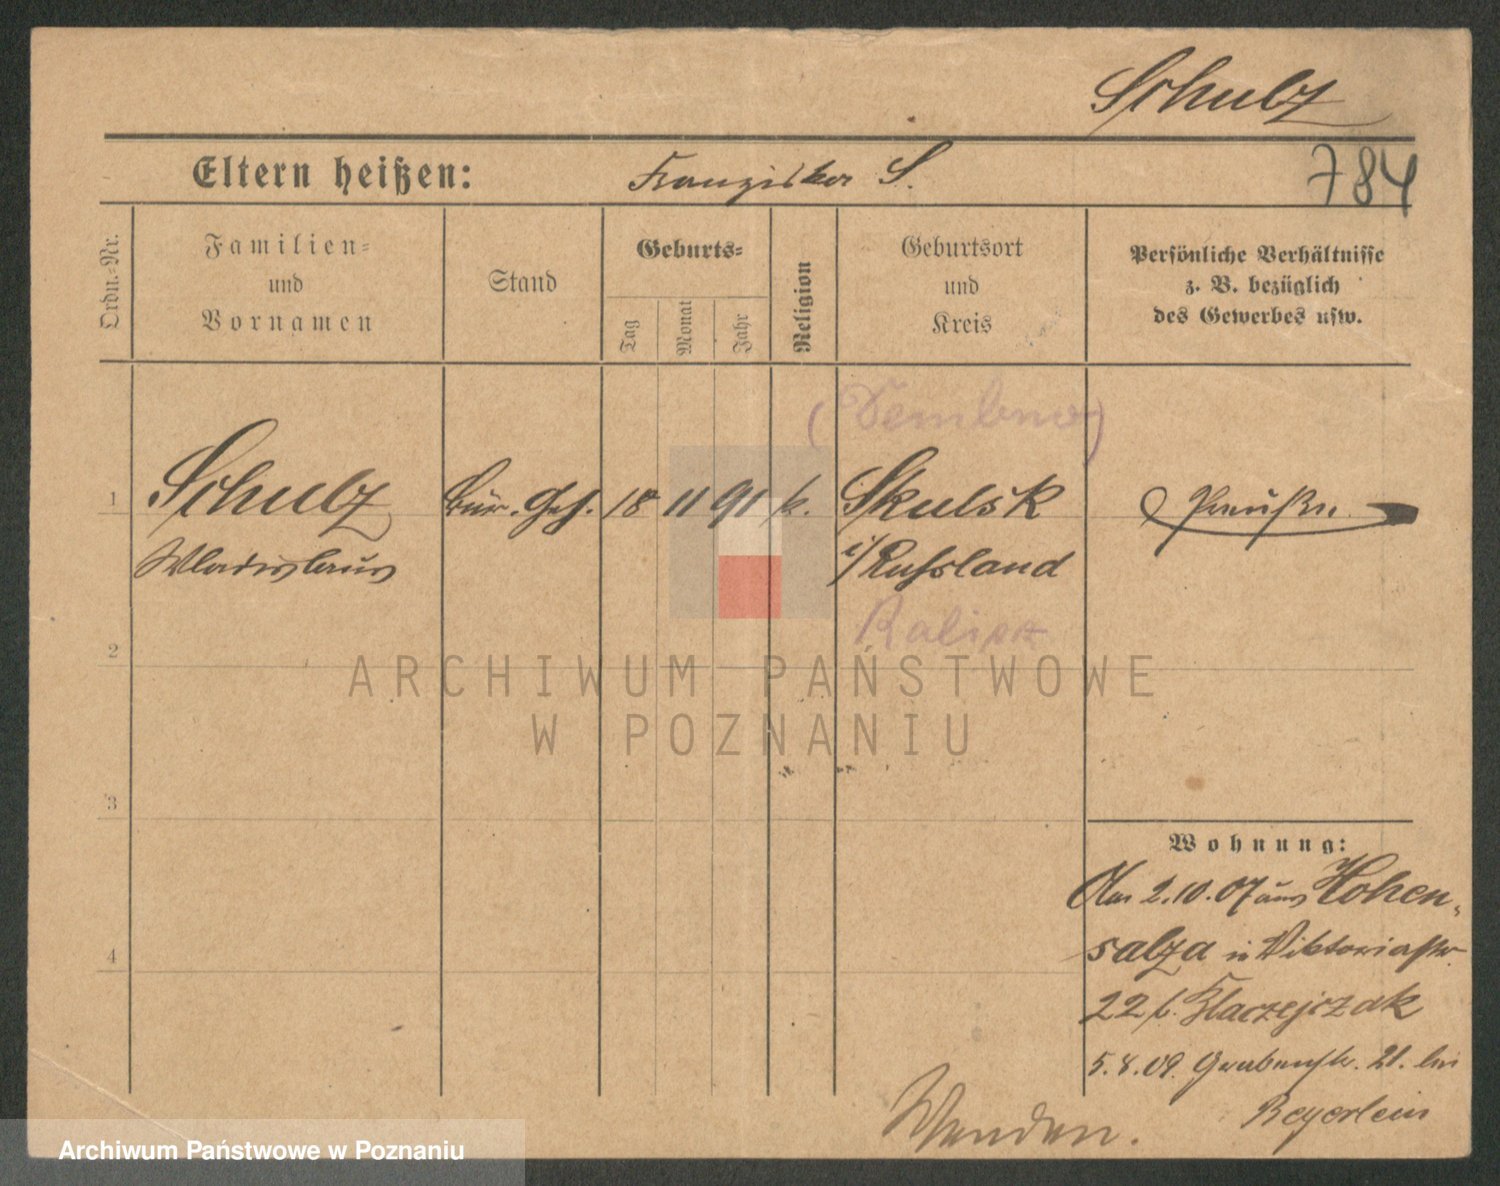 Schulz
Eltern heißen:
Franziska S.
784
Ordn.=Nr.
Familien=
und
Vornamen
Stand
Geburts=
Tag
Monat
Jahr
Religion
Geburtsort
und
Kreis
Persönliche Verhältnisse
z. B. bezüglich
des Gewerbes usw.
(Dembno)
1
Schulz
Bür. Geh.
18
11
91
k.
Skulsk
Preuße
Wladislaus
i/Russland
Kalisz
2
ARCHIWUM PAŃSTWOWE
W POZNANIU
3
Wohnung:
Am 2.10.07 aus Hohen-
4
salza in Viktoriastr.
22 b.
5.8.09. Grabenstr. 21. bei
Beyerlein
Wenden.
Archiwum Państwowe w Poznaniu